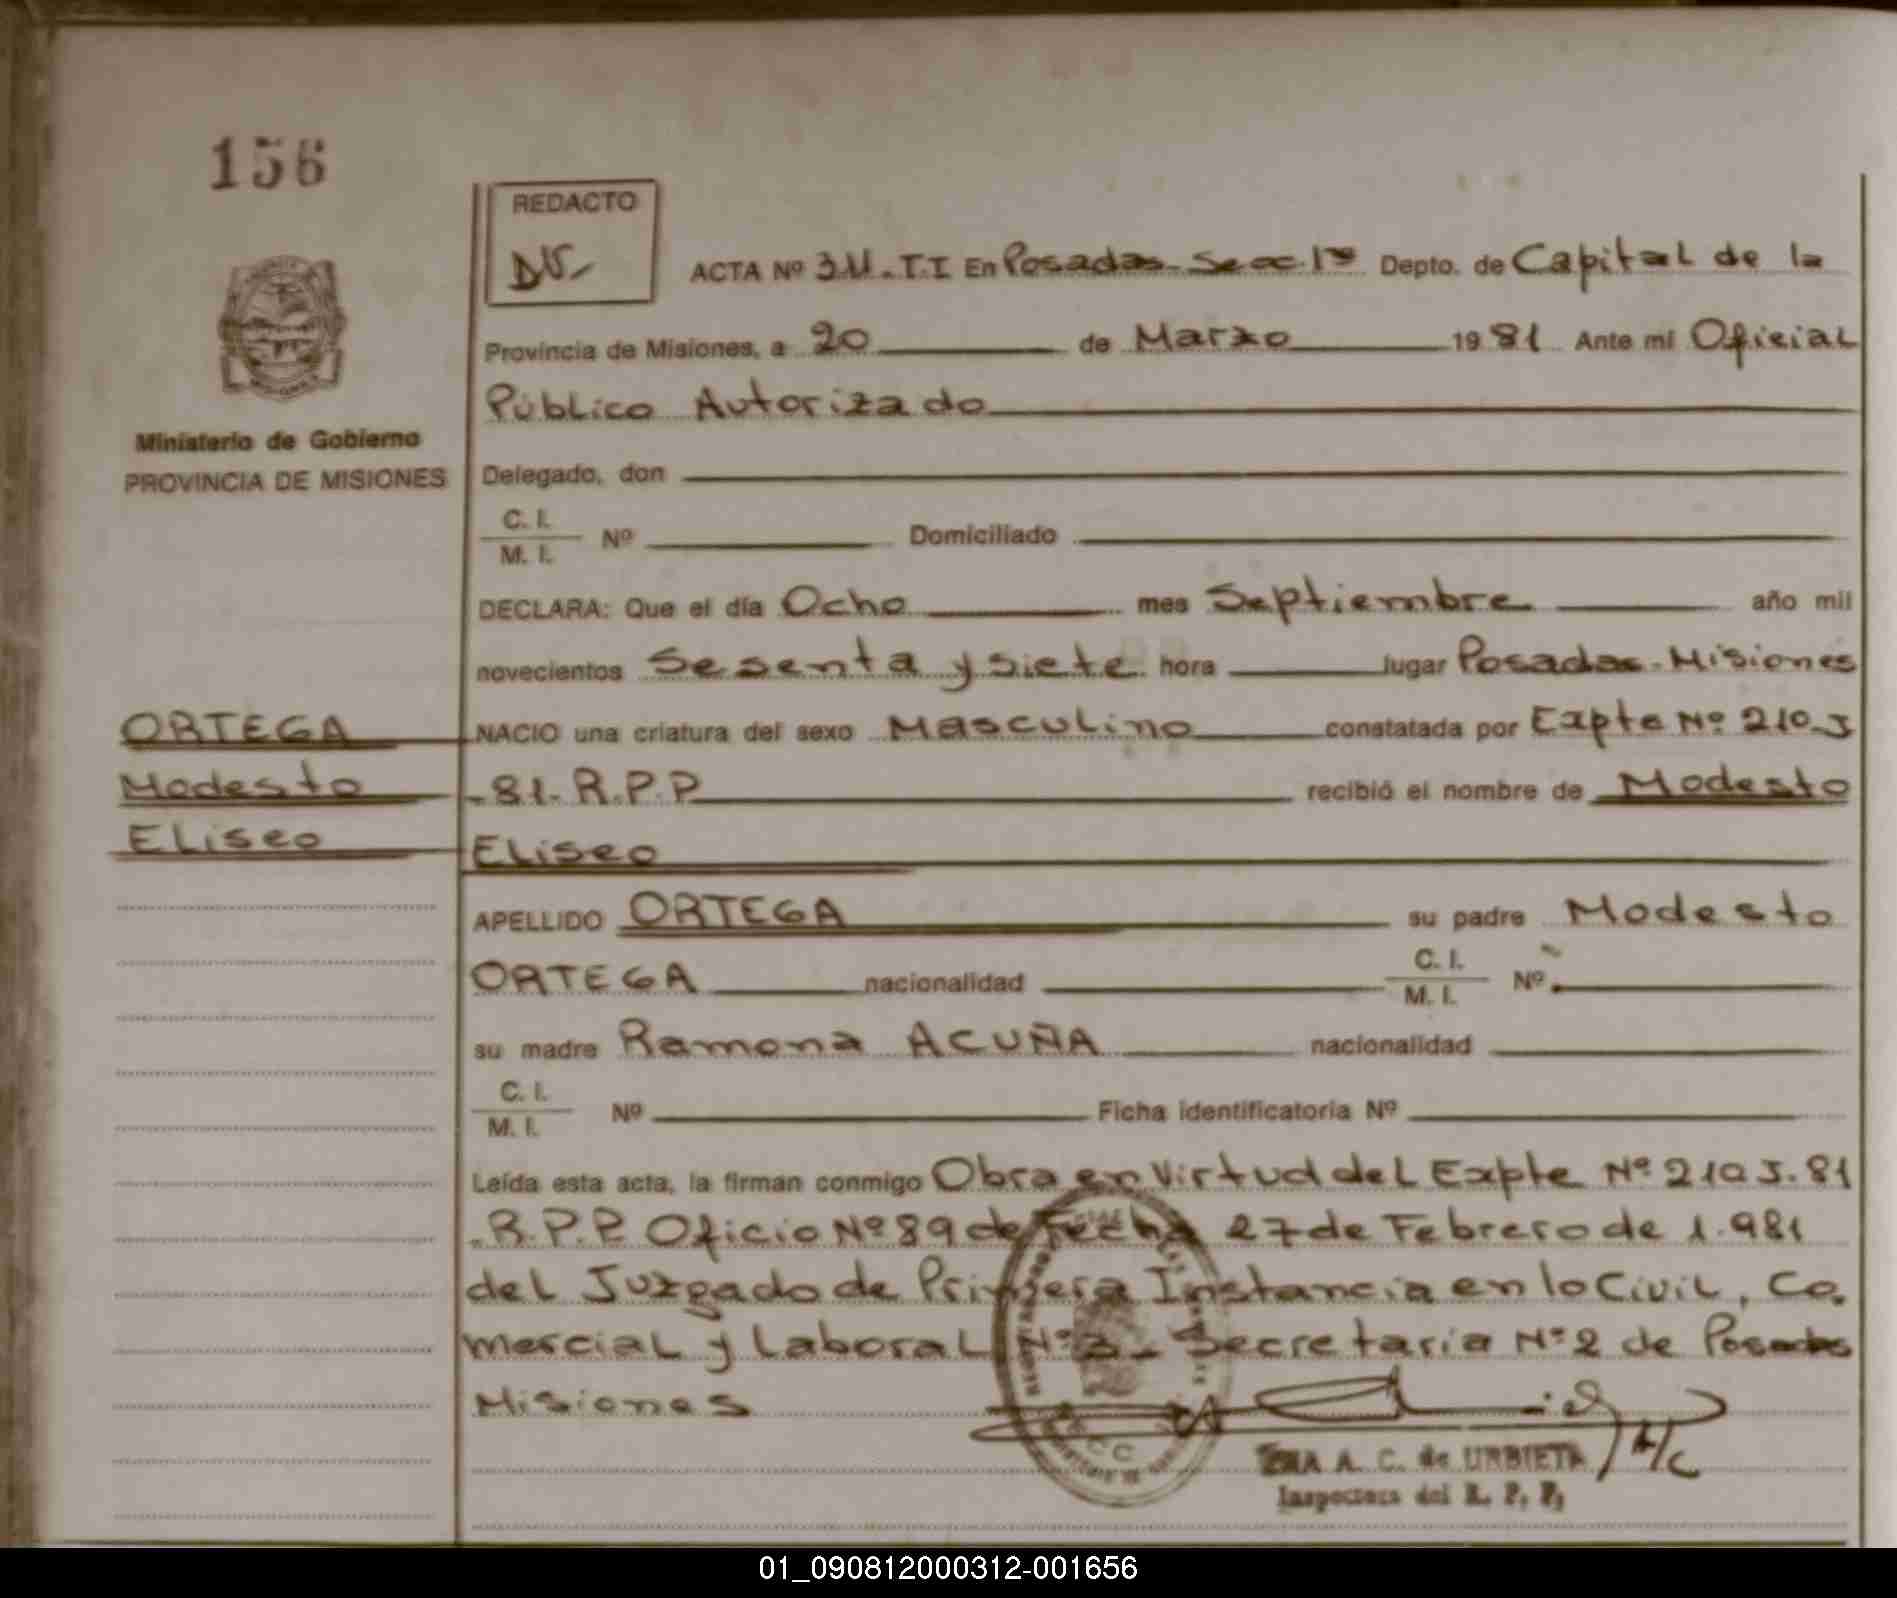 156
REDACTO
DV.
ACTA Nº 311.T.I En Posadas Secc. 1ra Depto. de Capital de la
Provincia de Misiones, a 20 de Marzo 1981 Ante mi Oficial
Público Autorizado
Ministerio de Gobierno
PROVINCIA DE MISIONES
Delegado, don
C. I.
M. I. Nº Domiciliado
DECLARA: Que el día Ocho mes Septiembre año mil
novecientos Sesenta y siete hora lugar Posadas. Misiones
ORTEGA
Modesto
Eliseo
NACIO una criatura del sexo Masculino constatada por Expte Nº 210.J
.81. R.P.P recibió el nombre de Modesto
Eliseo
APELLIDO ORTEGA su padre Modesto
ORTEGA nacionalidad C. I.
M. I. Nº
su madre Ramona ACUÑA nacionalidad
C. I.
M. I. Nº Ficha identificatoria Nº
Leída esta acta, la firman conmigo Obra en Virtud del Expte Nº 210 J.81
.R.P.P. Oficio Nº 89 de Fecha 27 de Febrero de 1.981
del Juzgado de Primera Instancia en lo Civil, Co.
mercial y Laboral Nº 3 - Secretaria Nº 2 de Posadas
Misiones
A. C. de URBIETA
Inspectora del R. P. P.
01_090812000312-001656